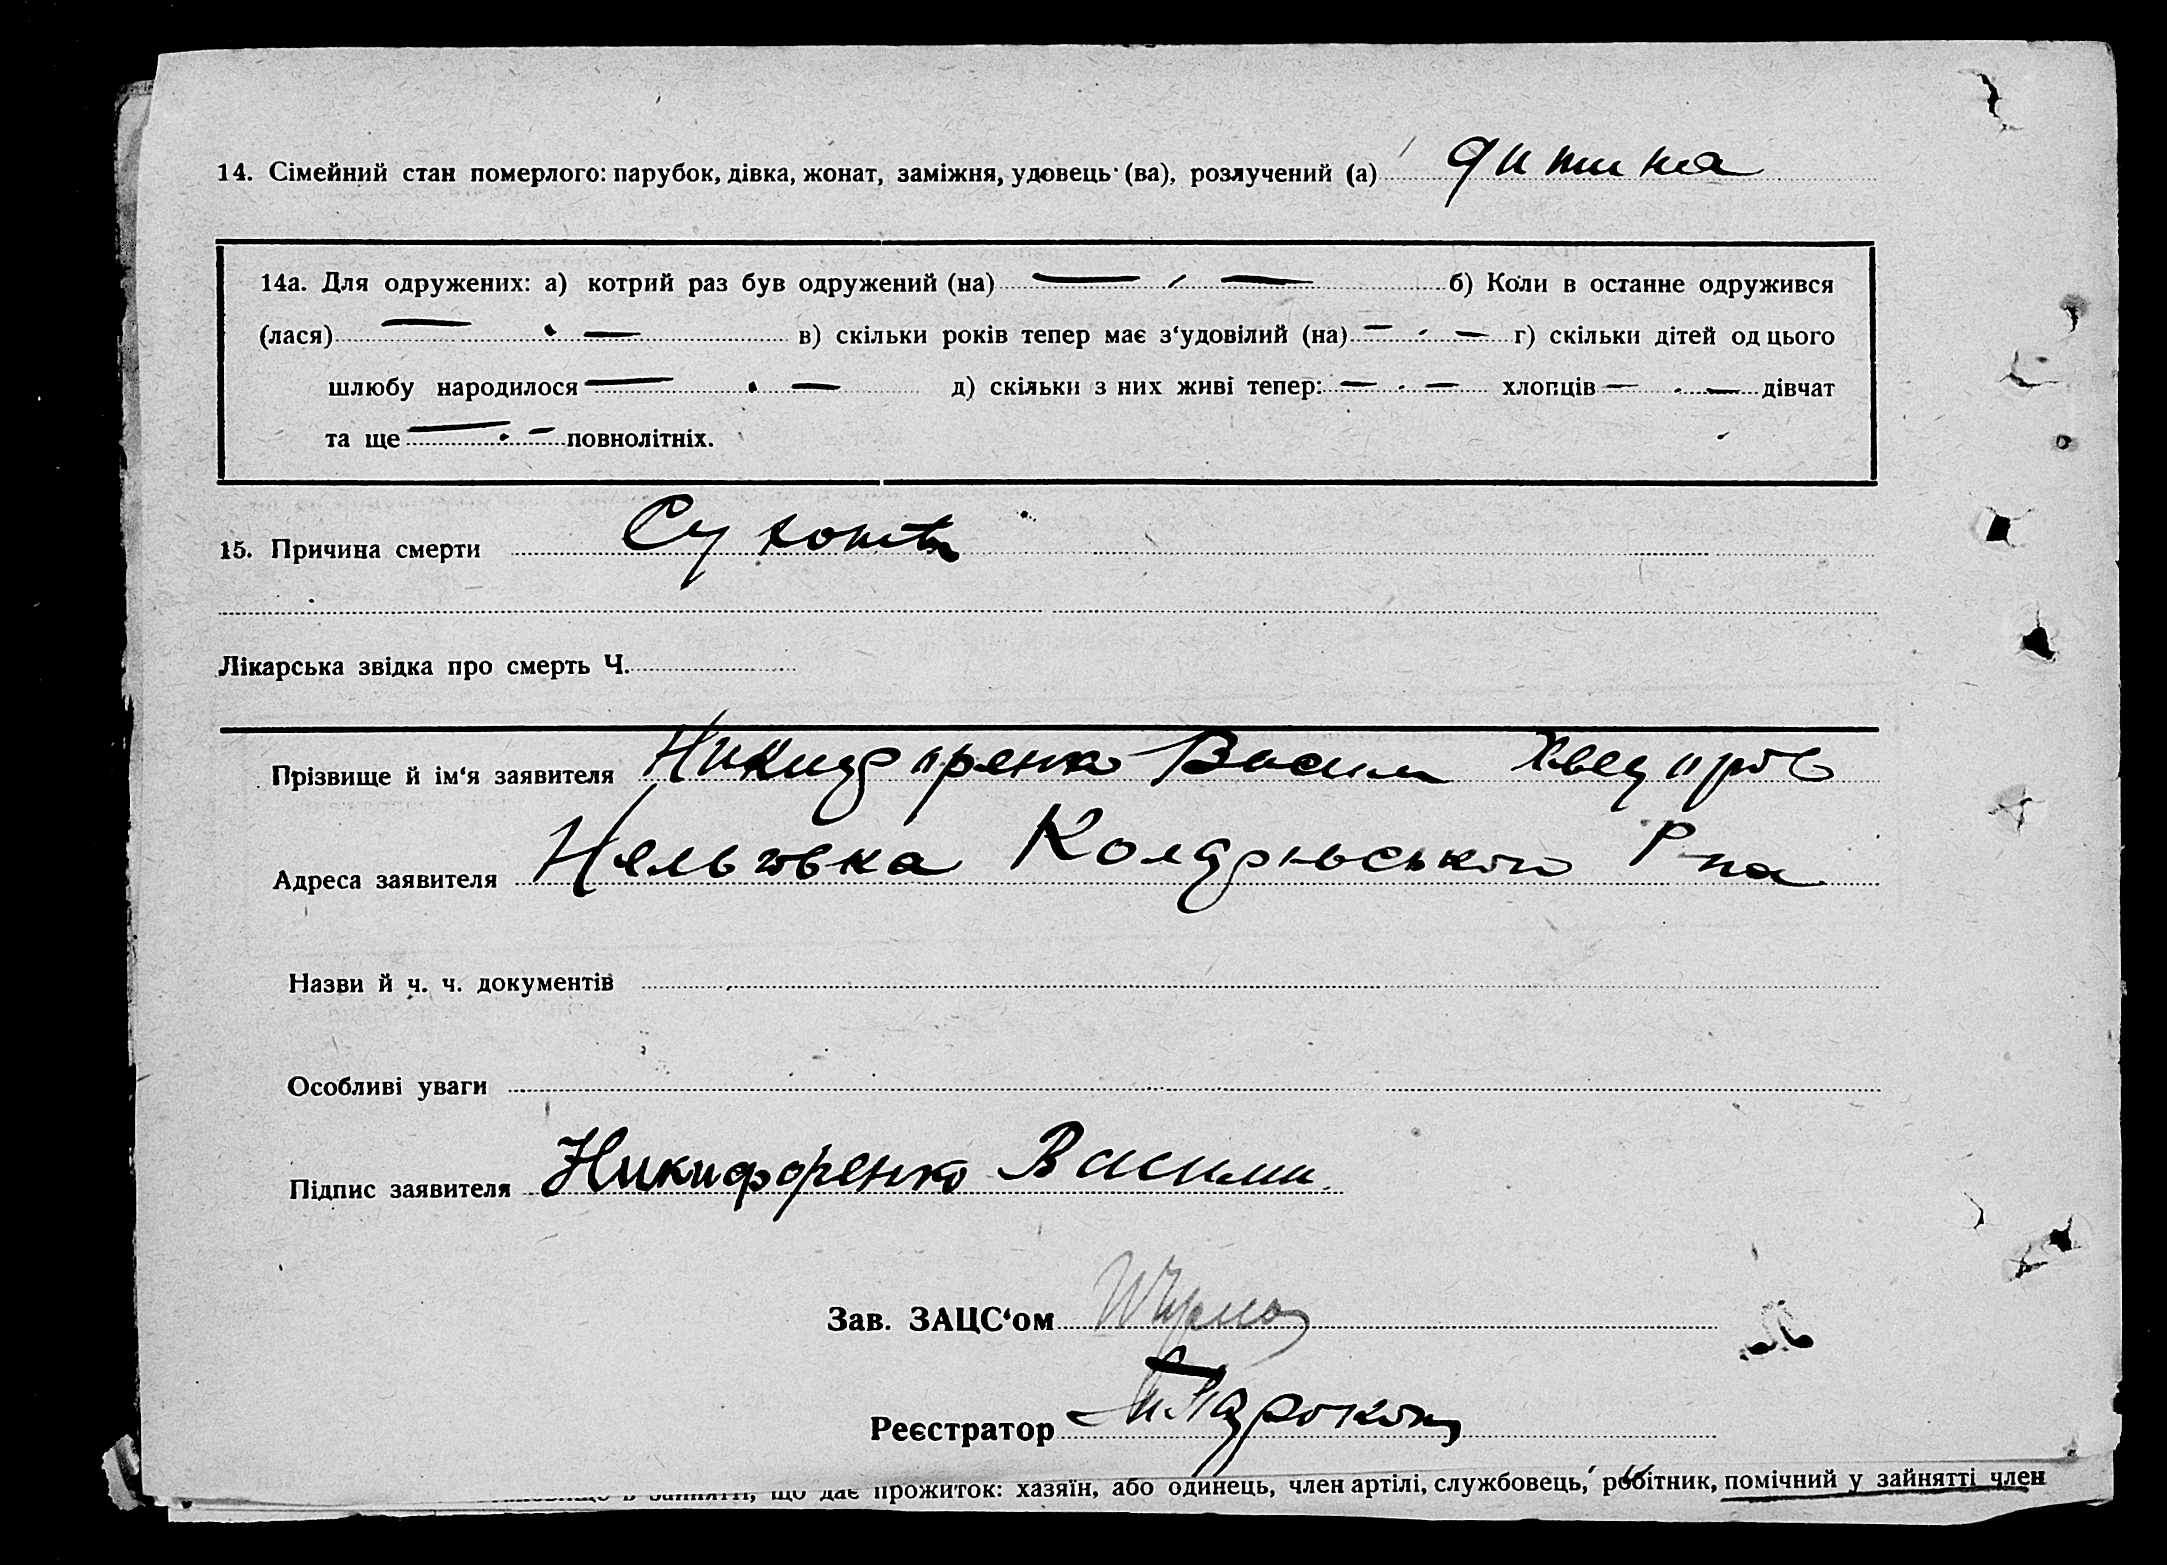 14. Сімейний стан померлого: парубок, дівка, жонат, заміжня, удовець (ва), розлучений (а) дитина
14а. Для одружених: а) котрий раз був одружений (на) — — б) Коли в останне одружився
(лася) — — в) скільки років тепер має з'удовілий (на) — — г) скільки дітей од цього
шлюбу народилося — — д) скільки з них живі тепер: — — хлопців — — дівчат
та ще — — повнолітніх.
15. Причина смерти Сухоти
Лікарська звідка про смерть Ч.
Прізвище й ім'я заявителя Никифоренко Васил Хведоров
Адреса заявителя Нельговка Р-на
Назви й ч. ч. документів
Особливі уваги
Підпис заявителя Никифоренко Васили
Зав. ЗАЦС'ом
Реєстратор
що дає прожиток: хазяїн, або одинець, член артілі, службовець, робітник, помічний у зайнятті член